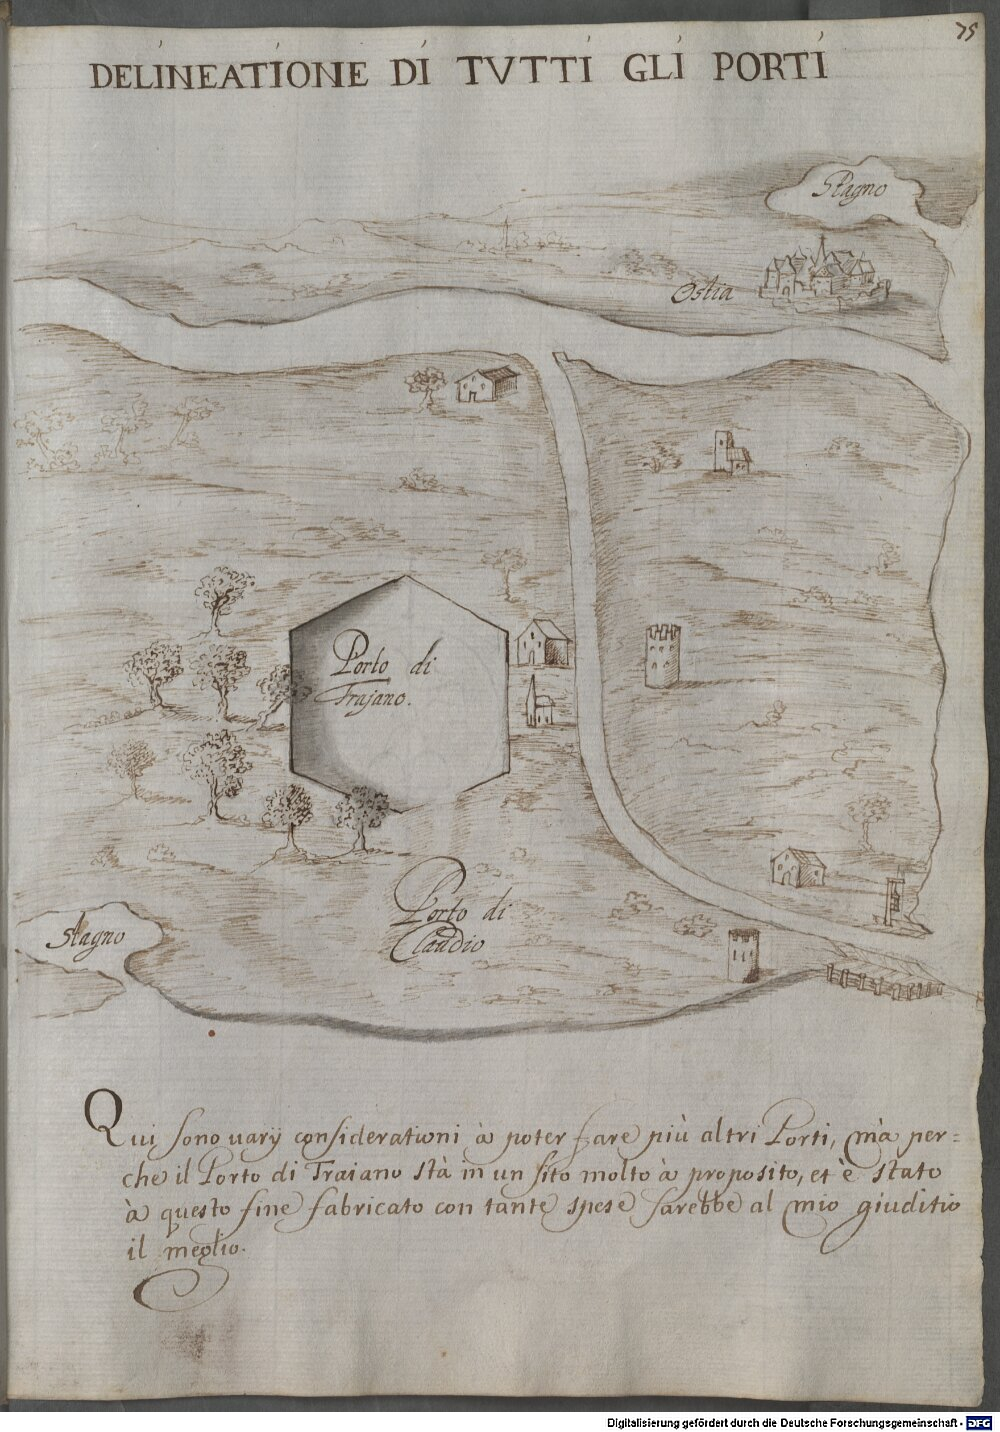 75
DELINEATIONE DI TVTTI GLI PORTI
Stagno
Ostia
Porto di
Trajano.
Porto di
Claudio
Stagno
Qui sono varij considerationi à poter fare più altri Porti, mà per=
che il Porto di Traiano stà in un sito molto à proposito, et è stato
à questo fine fabricato con tante spese sarebbe al mio giuditio
il meglio.
Digitalisierung gefördert durch die Deutsche Forschungsgemeinschaft - DFG